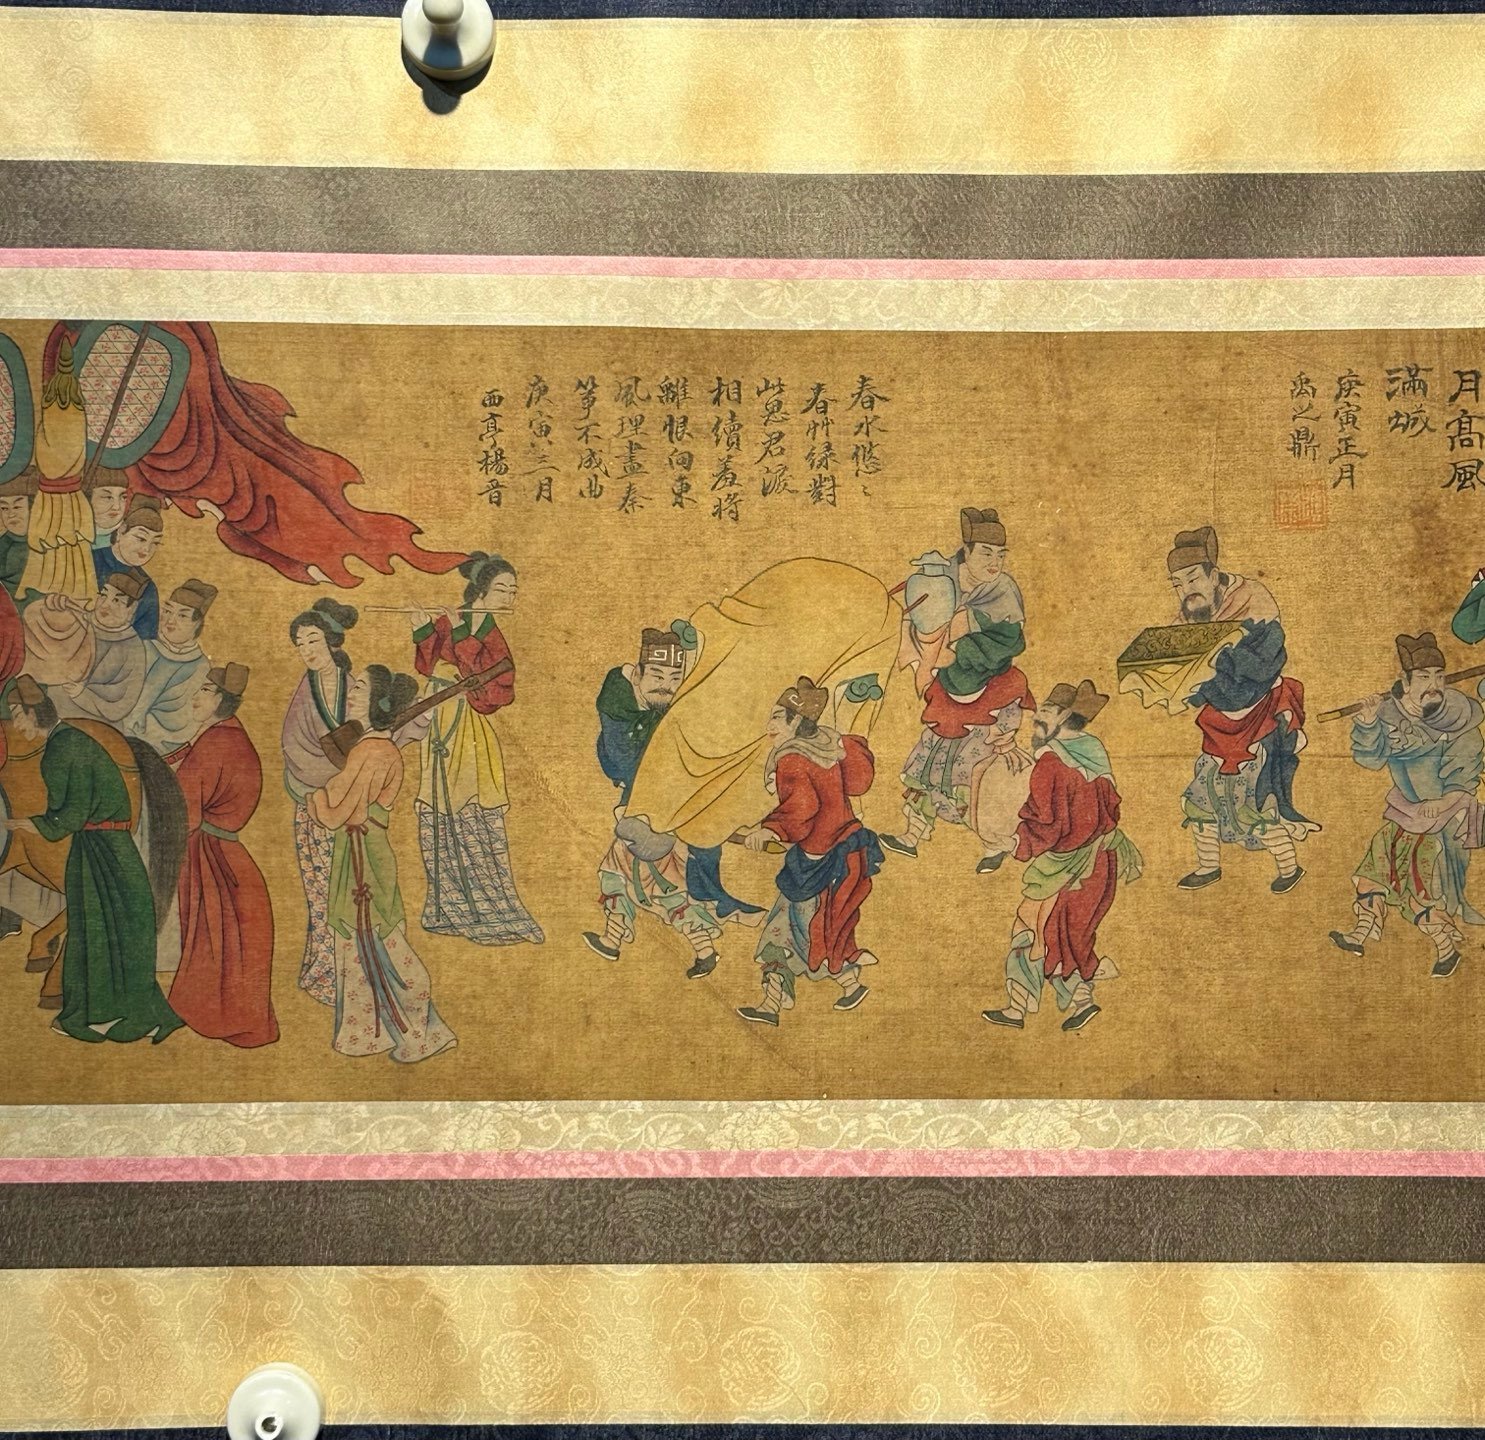 月高風
滿城
庚寅正月
禹之鼎
春水悠〻
春艸綠對
此思君淚
相續羞將
離恨向東
風理盡秦
箏不成曲
庚寅三月
西亭楊晉